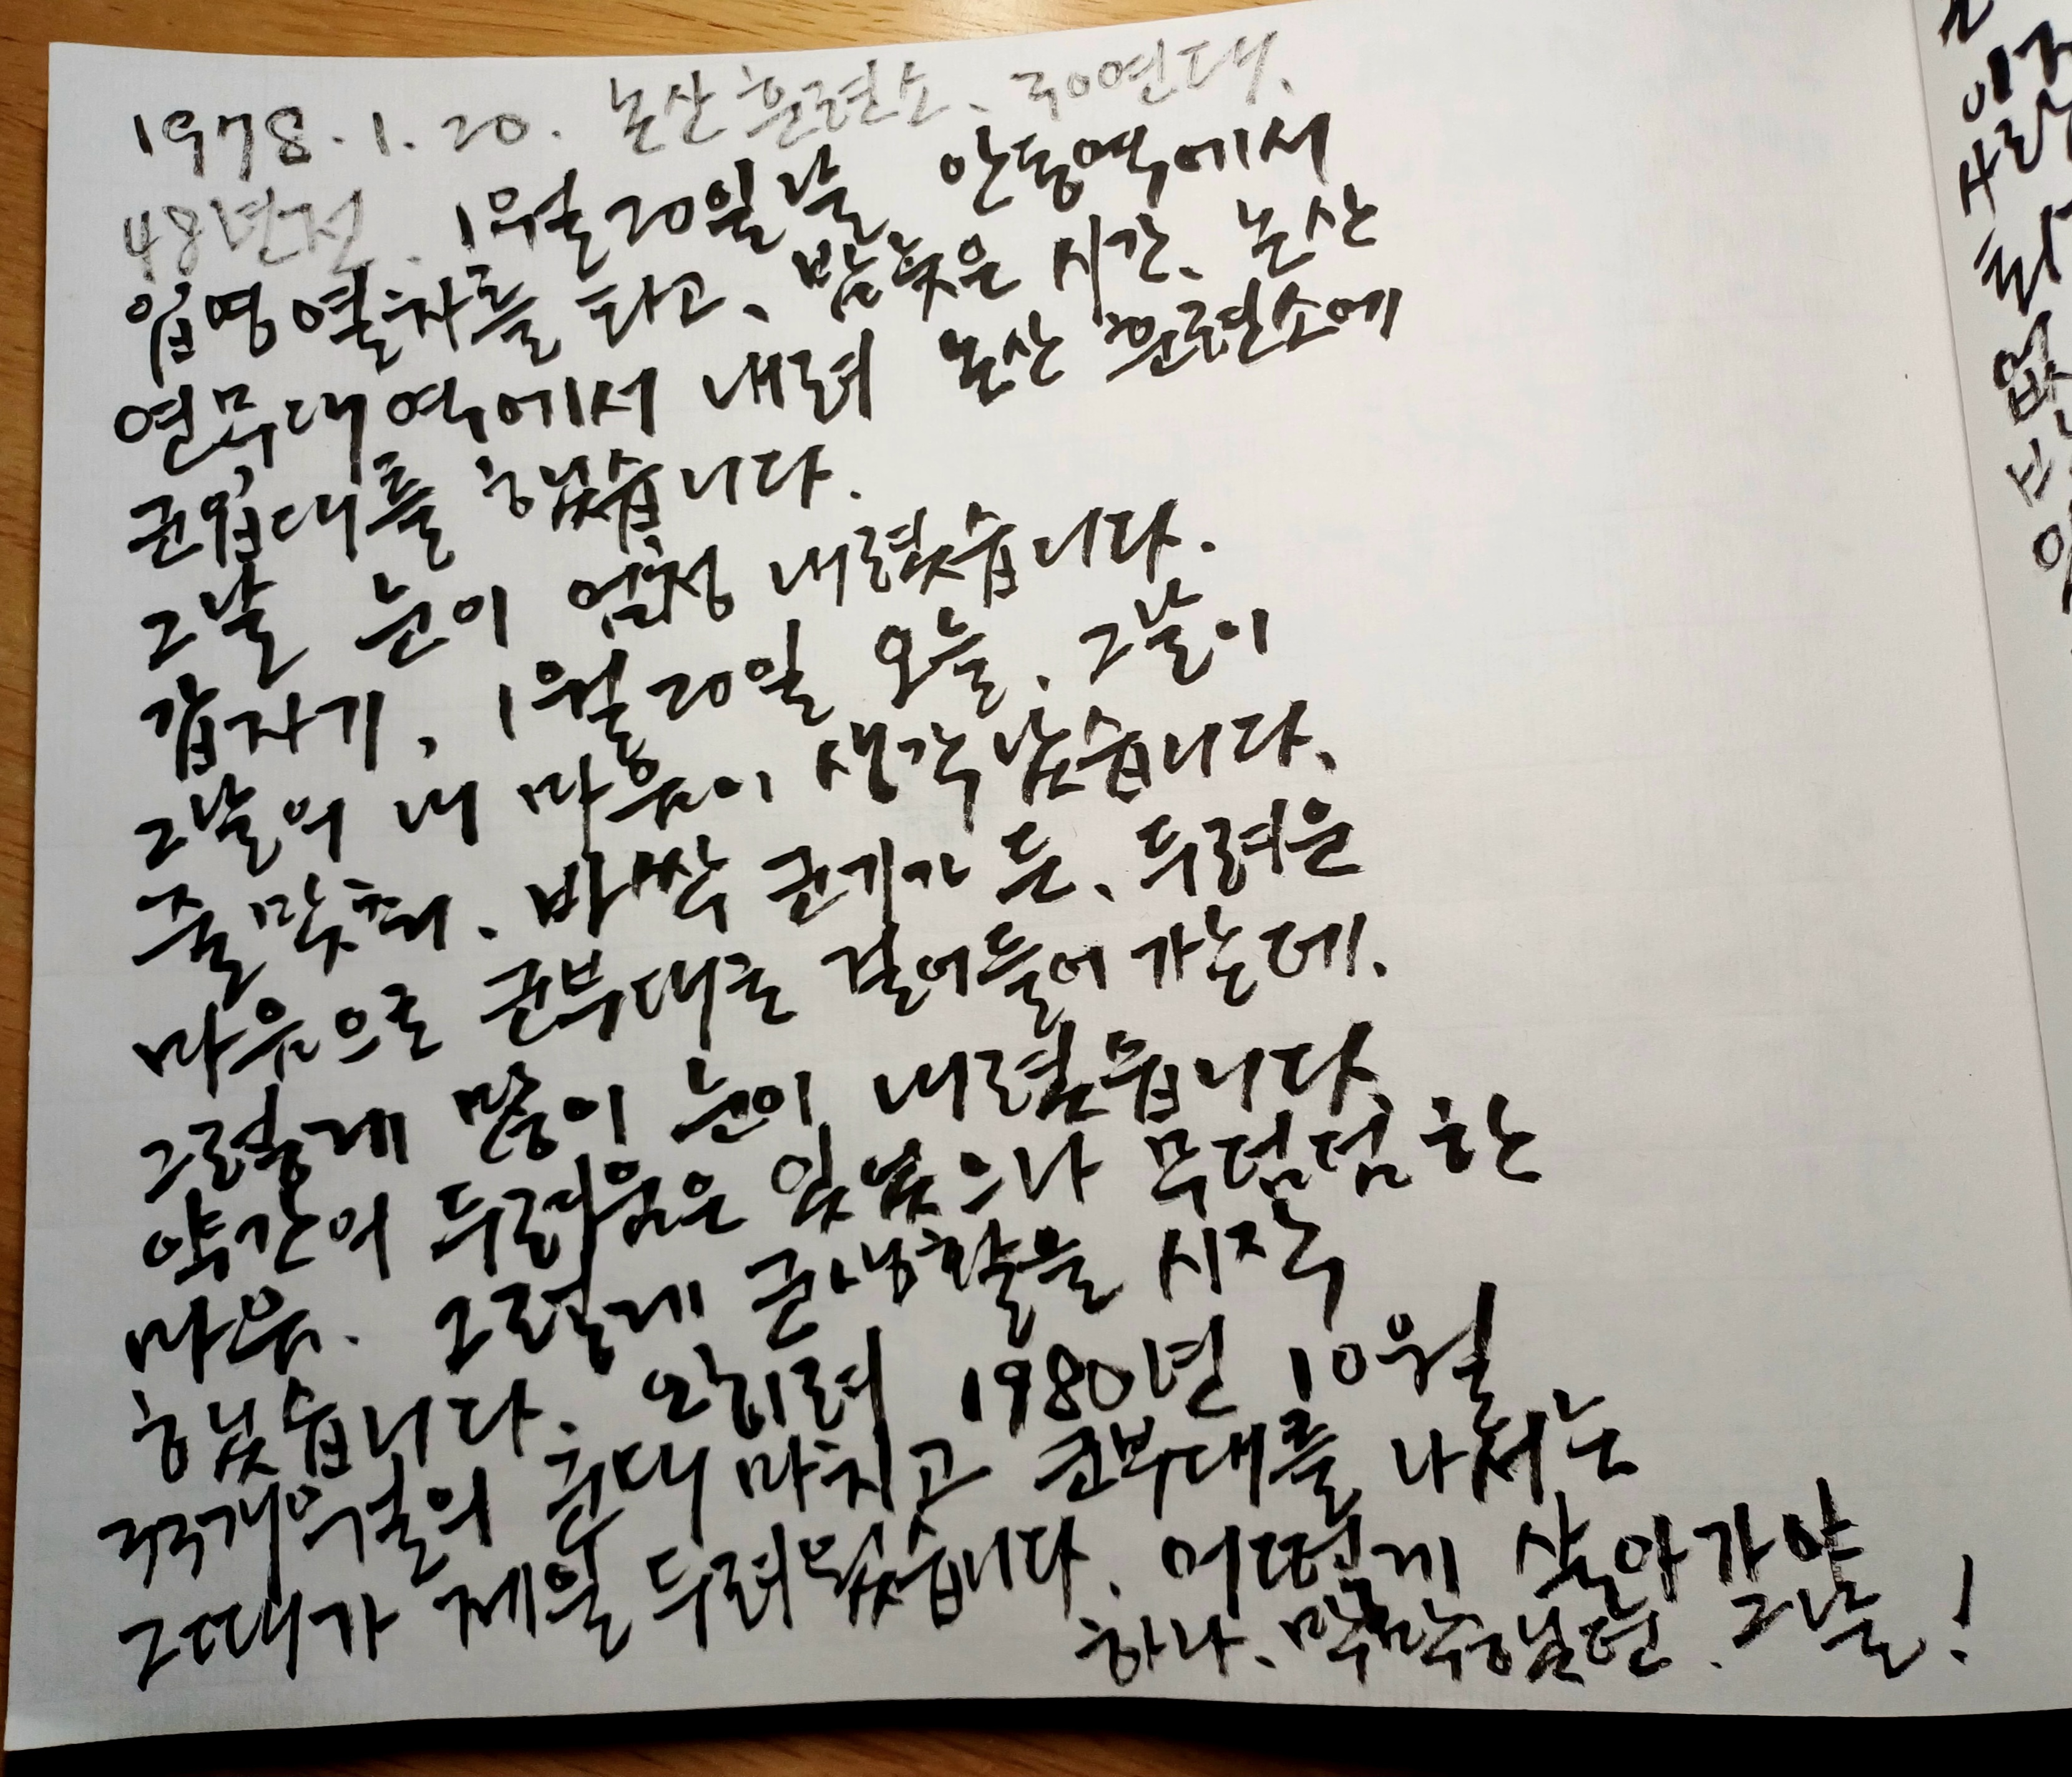 1978.1.20. 논산훈련소、30연대、
48년전. 1월20일날 안동역에서
입영열차를 타고、밤늦은 시간、논산
연무대역에서 내려 논산훈련소에
군입대를 했습니다.
그날 눈이 엄청 내렸습니다.
갑자기, 1월20일 오늘、그날이
그날의 내 마음이 생각났습니다、
줄맞춰、바싹 군기가 든、두려운
마음으로 군부대로 걸어들어가는데、
그렇게 많이 눈이 내렸습니다、
약간의 두려움은 있었으나 무덤덤한
마음. 그렇게 군생활을 시작
했습니다. 오히려 1980년 10월
33개월의 군대 마치고 군부대를 나서는
그때가 제일 두려웠습니다、어떻게 살아가야
하나、막막했던、그날!
이
사람